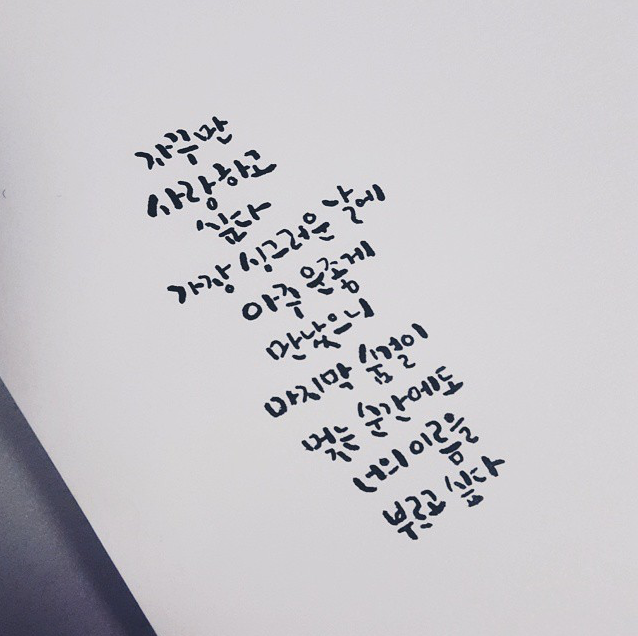 자꾸만
사랑하고
싶다
가장 싱그러운 날에
아주 운좋게
만났으니
마지막 숨결이
멎는 순간에도
너의 이름을
부르고 싶다